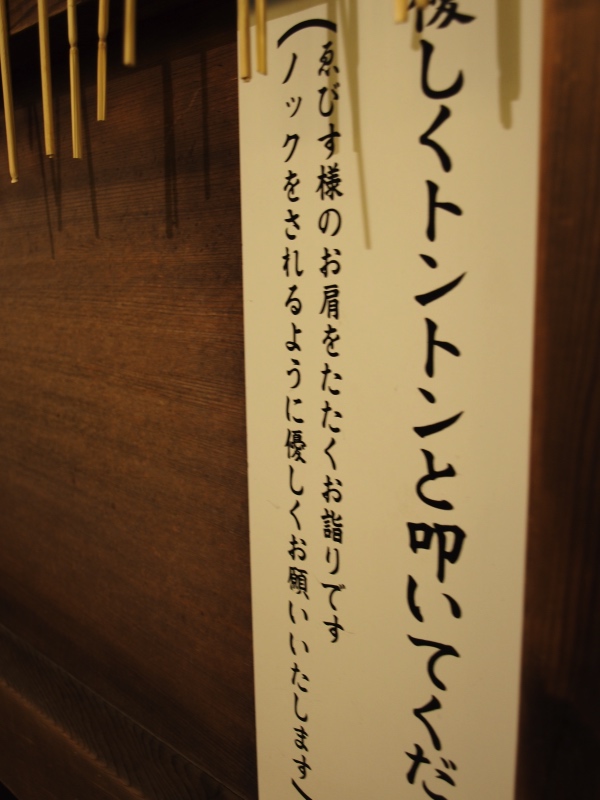 優しくトントンと叩いてくだ
（ゑびす様のお肩をたたくお詣りです
ノックをされるように優しくお願いいたします）